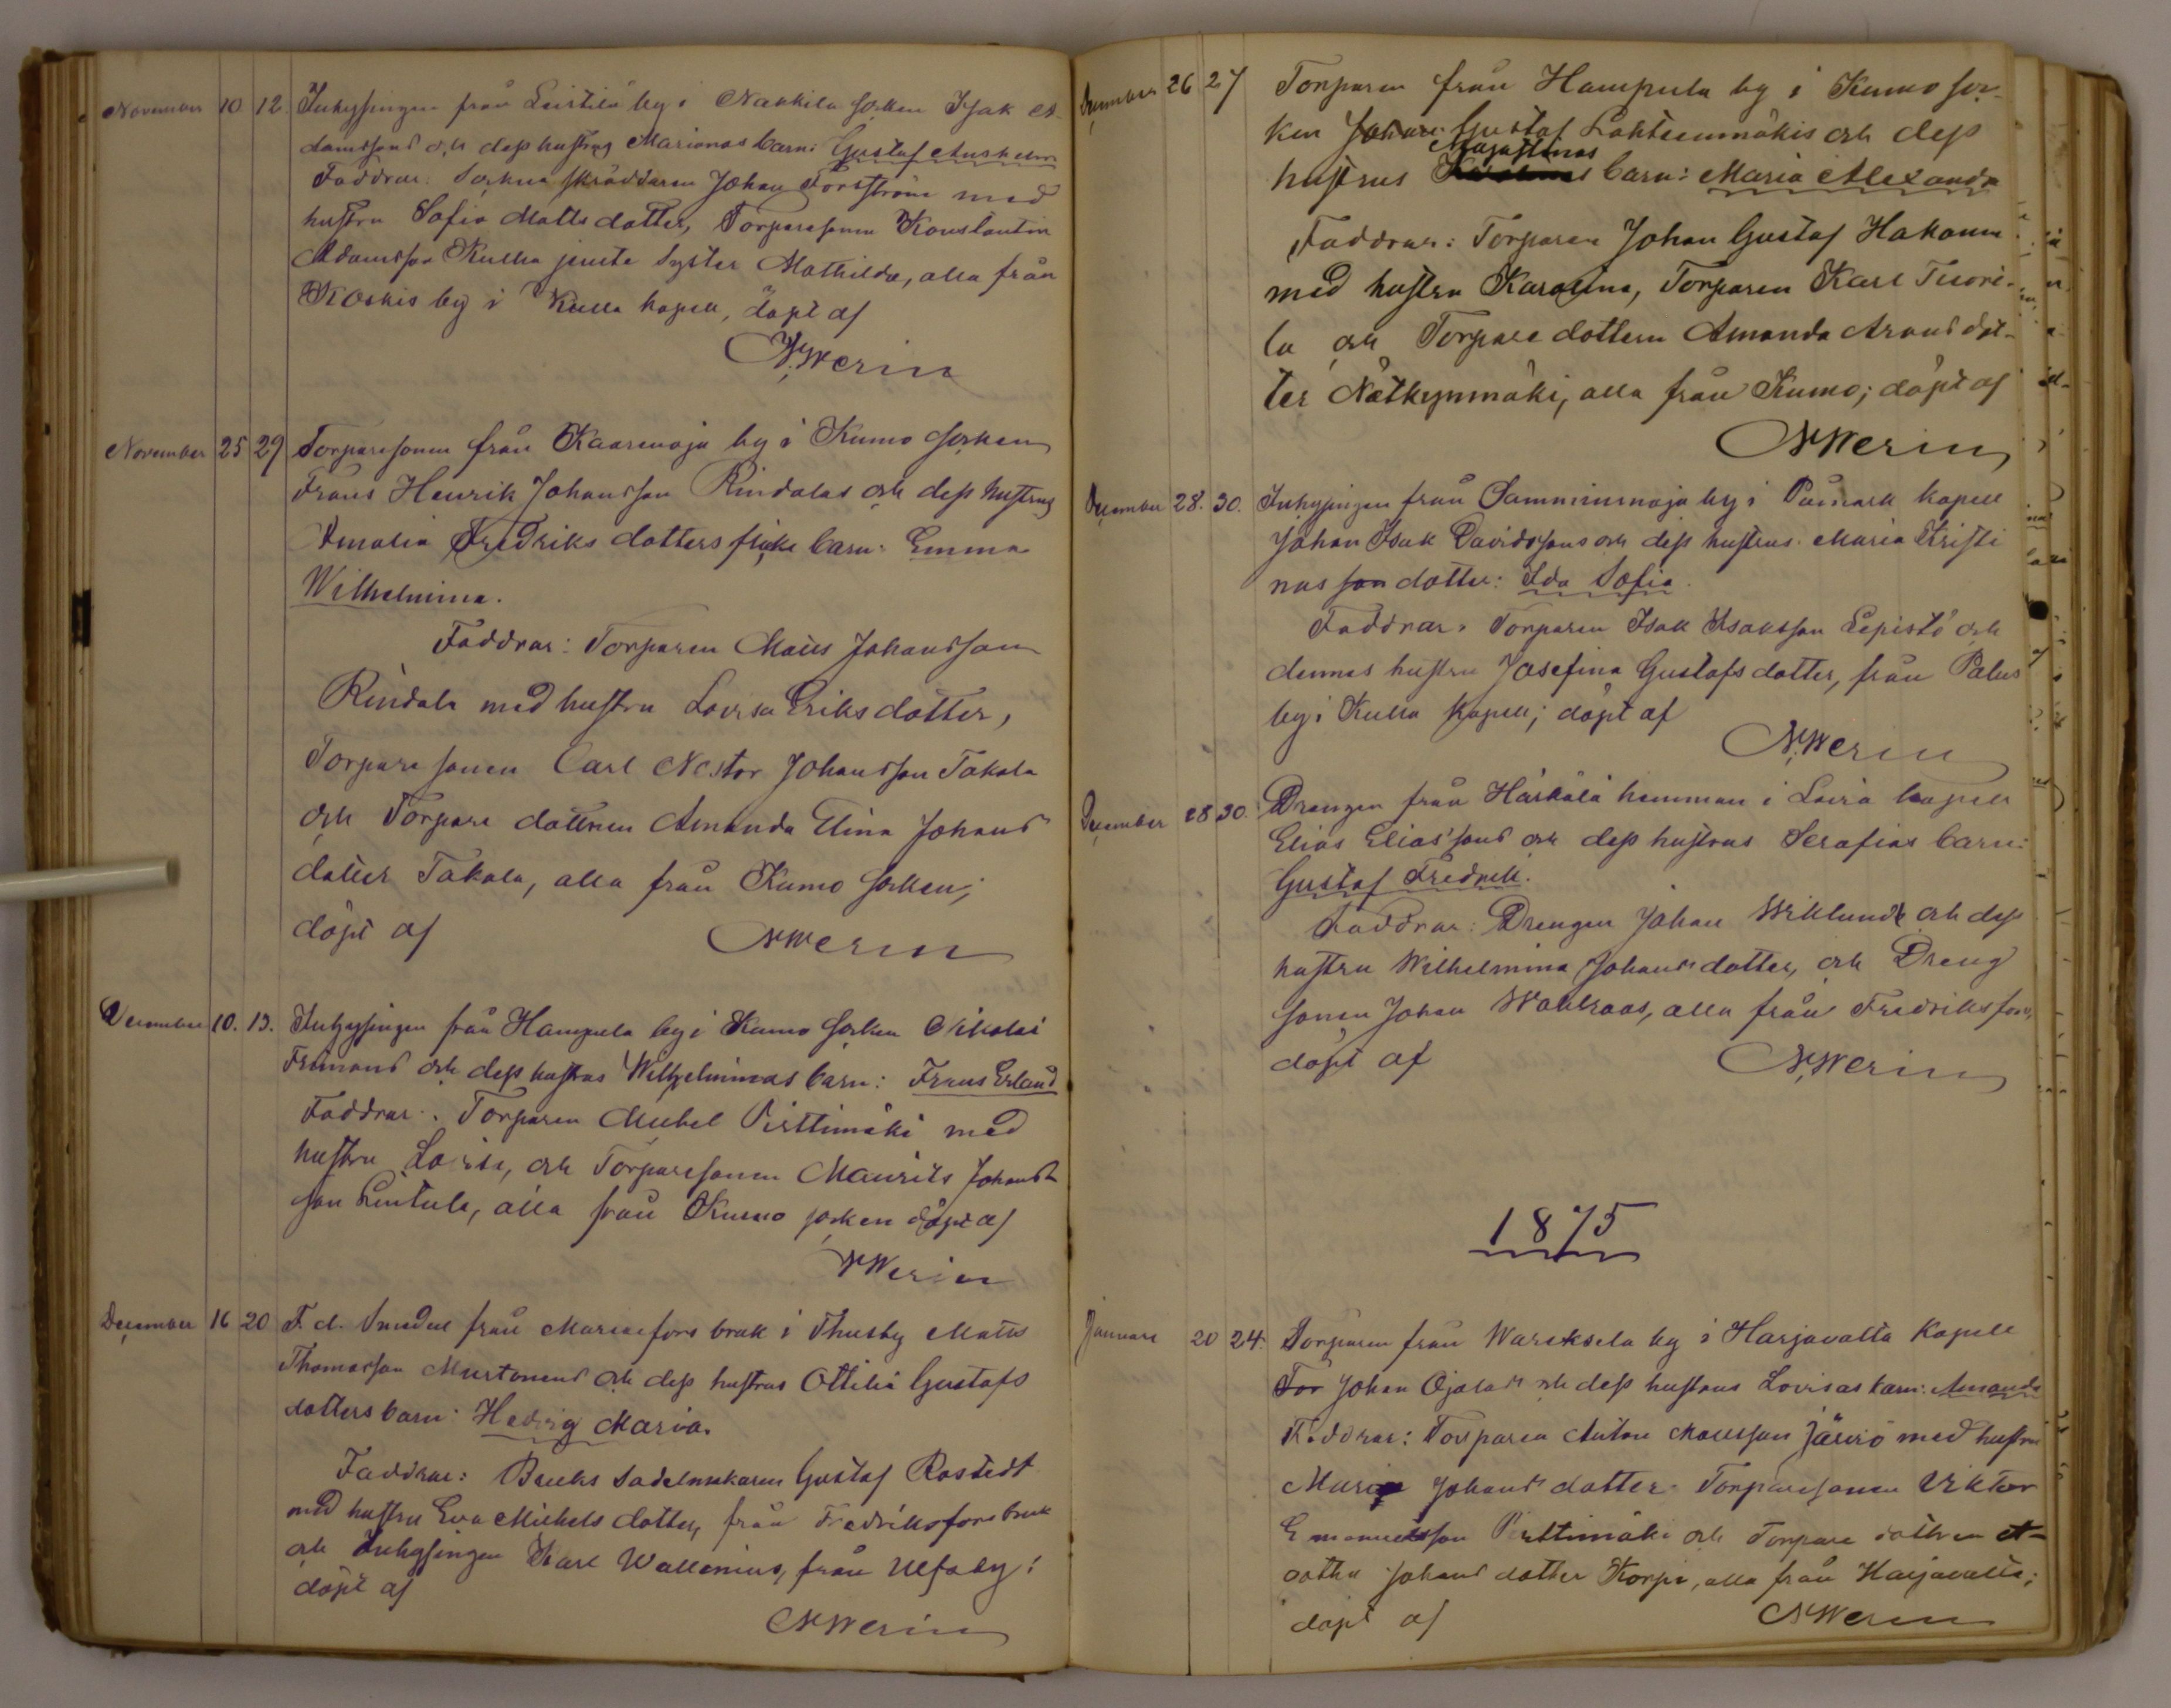 November 10 12. Inhysingen från Leistilä by i Nakkila socken Isak A-
damssons och dess hustrus Marianas barn: Gustaf Anshelm
Faddrar: Sockne skräddaren Johan Forsström med
hustru Sofia Matts dotter, Torparesonen Konstantin
Adamsson Kulha jemte syster Mathilda, alla från
Koskis by i Kulla kapell, döpt af
N. Werin
November 25 29 Torparesonen från Kaarenoja by i Kumo socken
Frans Henrik Johansson Rindalas och dess hustrus
Amalia Fredriks dotters flicke barn: Emma
Wilhelmina.
Faddrar: Torparen Matts Johansson
Rindala med hustru Lovisa Eriks dotter,
Torpare sonen Carl Nestor Johansson Takala
och Torpare dottren Amanda Elina Johans
dotter Takala, alla från Kumo socken;
döpt af N Werin
December 10. 13. Inhysingen från Hampula by i Kumo socken Nikolai
Frimans och dess hustrus Wilhelminas barn: Frans Erland
Faddrar: Torparen Mickel Pirttimäki med
hustru Lovisa, och Torparesonen Maurits Johans
son Lintula, alla från Kumo socken döpt af
N Werin
December 16 20 F. d. Smeden från Mariaefors bruk i Thusby Matts
Thomasson Murtonens och dess hustrus Ottilia Gustafs
dotters barn: Hedvig Maria.
Faddrar: Bruks Sadelmakaren Gustaf Rostedt
med hustru Eva Michels dotter, från Fredriksfors bruk
och Inhysingen Karl Wallenius, från Ulfsby;
döpt af
N Werin
December 26 27 Torparen från Hampula by i Kumo soc-
ken Johan Gustaf Lähteenmäkis och dess
hustrus barn: Maria Alexandra
Faddrar: Torparen Johan Gustaf Hakanen
med hustru Karolina, Torparen Karl Tuori-
la och Torpare dottern Amanda Arons dot-
ter Nätkynmäki, alla från Kumo; döpt af
N Werin
December 28. 30. Inhysingen från Samminmaja by i Påmark kapell
Johan Isak Davidssons och dess hustrus Maria Kristi
nas son dotter: Ida Sofia.
Faddrar: Torparen Isak Isaksson Lepistö och
dennes hustru Josefina Gustafs dotter, från Palus
by i Kulla Kapell; döpt af
N. Werin
December 28 30. Drengen från Härkälä hemman i Lavia kapell
Elias Elias'sons och dess hustrus Serafias barn:
Gustaf Fredrik.
Faddrar: Drengen Johan Wiklund och dess
hustru Wilhelmina Johans dotter, och Dreng
sonen Johan Wahlroos, alla från Fredriksfors,
döpt af N. Werin
1875
Januari 20 24. Torparen från Wareksela by i Harjavalta Kapell
For Johan Ojalas och dess hustrus Lovisas barn: Amanda
Faddrar: Torparen Anton Mattsson Järviö med hustru
Maria Johans dotter. Torparesonen Viktor
Emanuelsson Pirttimäki och Torpare dottren A-
gatha Johans dotter Korpi, alla från Harjavalta;
döpt af N Werin